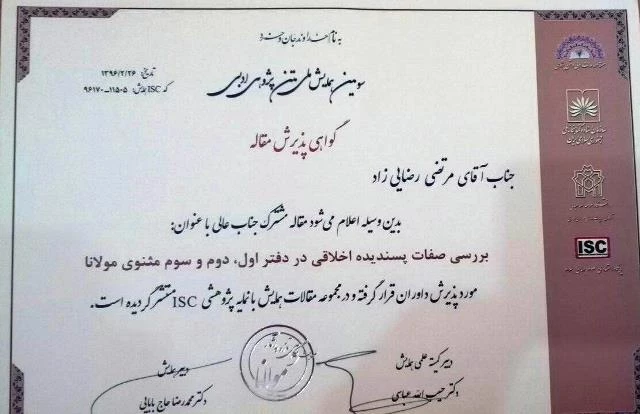 به نام خداوند جان و خرد
سومین همایش ملی متن پژوهی ادبی
تاریخ: ۱۳۹۶/۲/۲۶
کد ISC همایش: ۱۱۵۰۵-۹۶۱۷۰
گواهی پذیرش مقاله
جناب آقای مرتضی رضایی زاد
بدین وسیله اعلام می‌شود مقاله مشترک جناب عالی با عنوان:
بررسی صفات پسندیده اخلاقی در دفتر اول، دوم و سوم مثنوی مولانا
مورد پذیرش داوران قرار گرفته و در مجموعه مقالات همایش با نمایه پژوهشی ISC منتشر گردیده است.
دبیر کمیته علمی همایش
دکتر حبیب الله عباسی
دبیر همایش
دکتر محمدرضا حاج بابایی
مولانا
سازمان اسناد و کتابخانه ملی
جمهوری اسلامی ایران
ISC